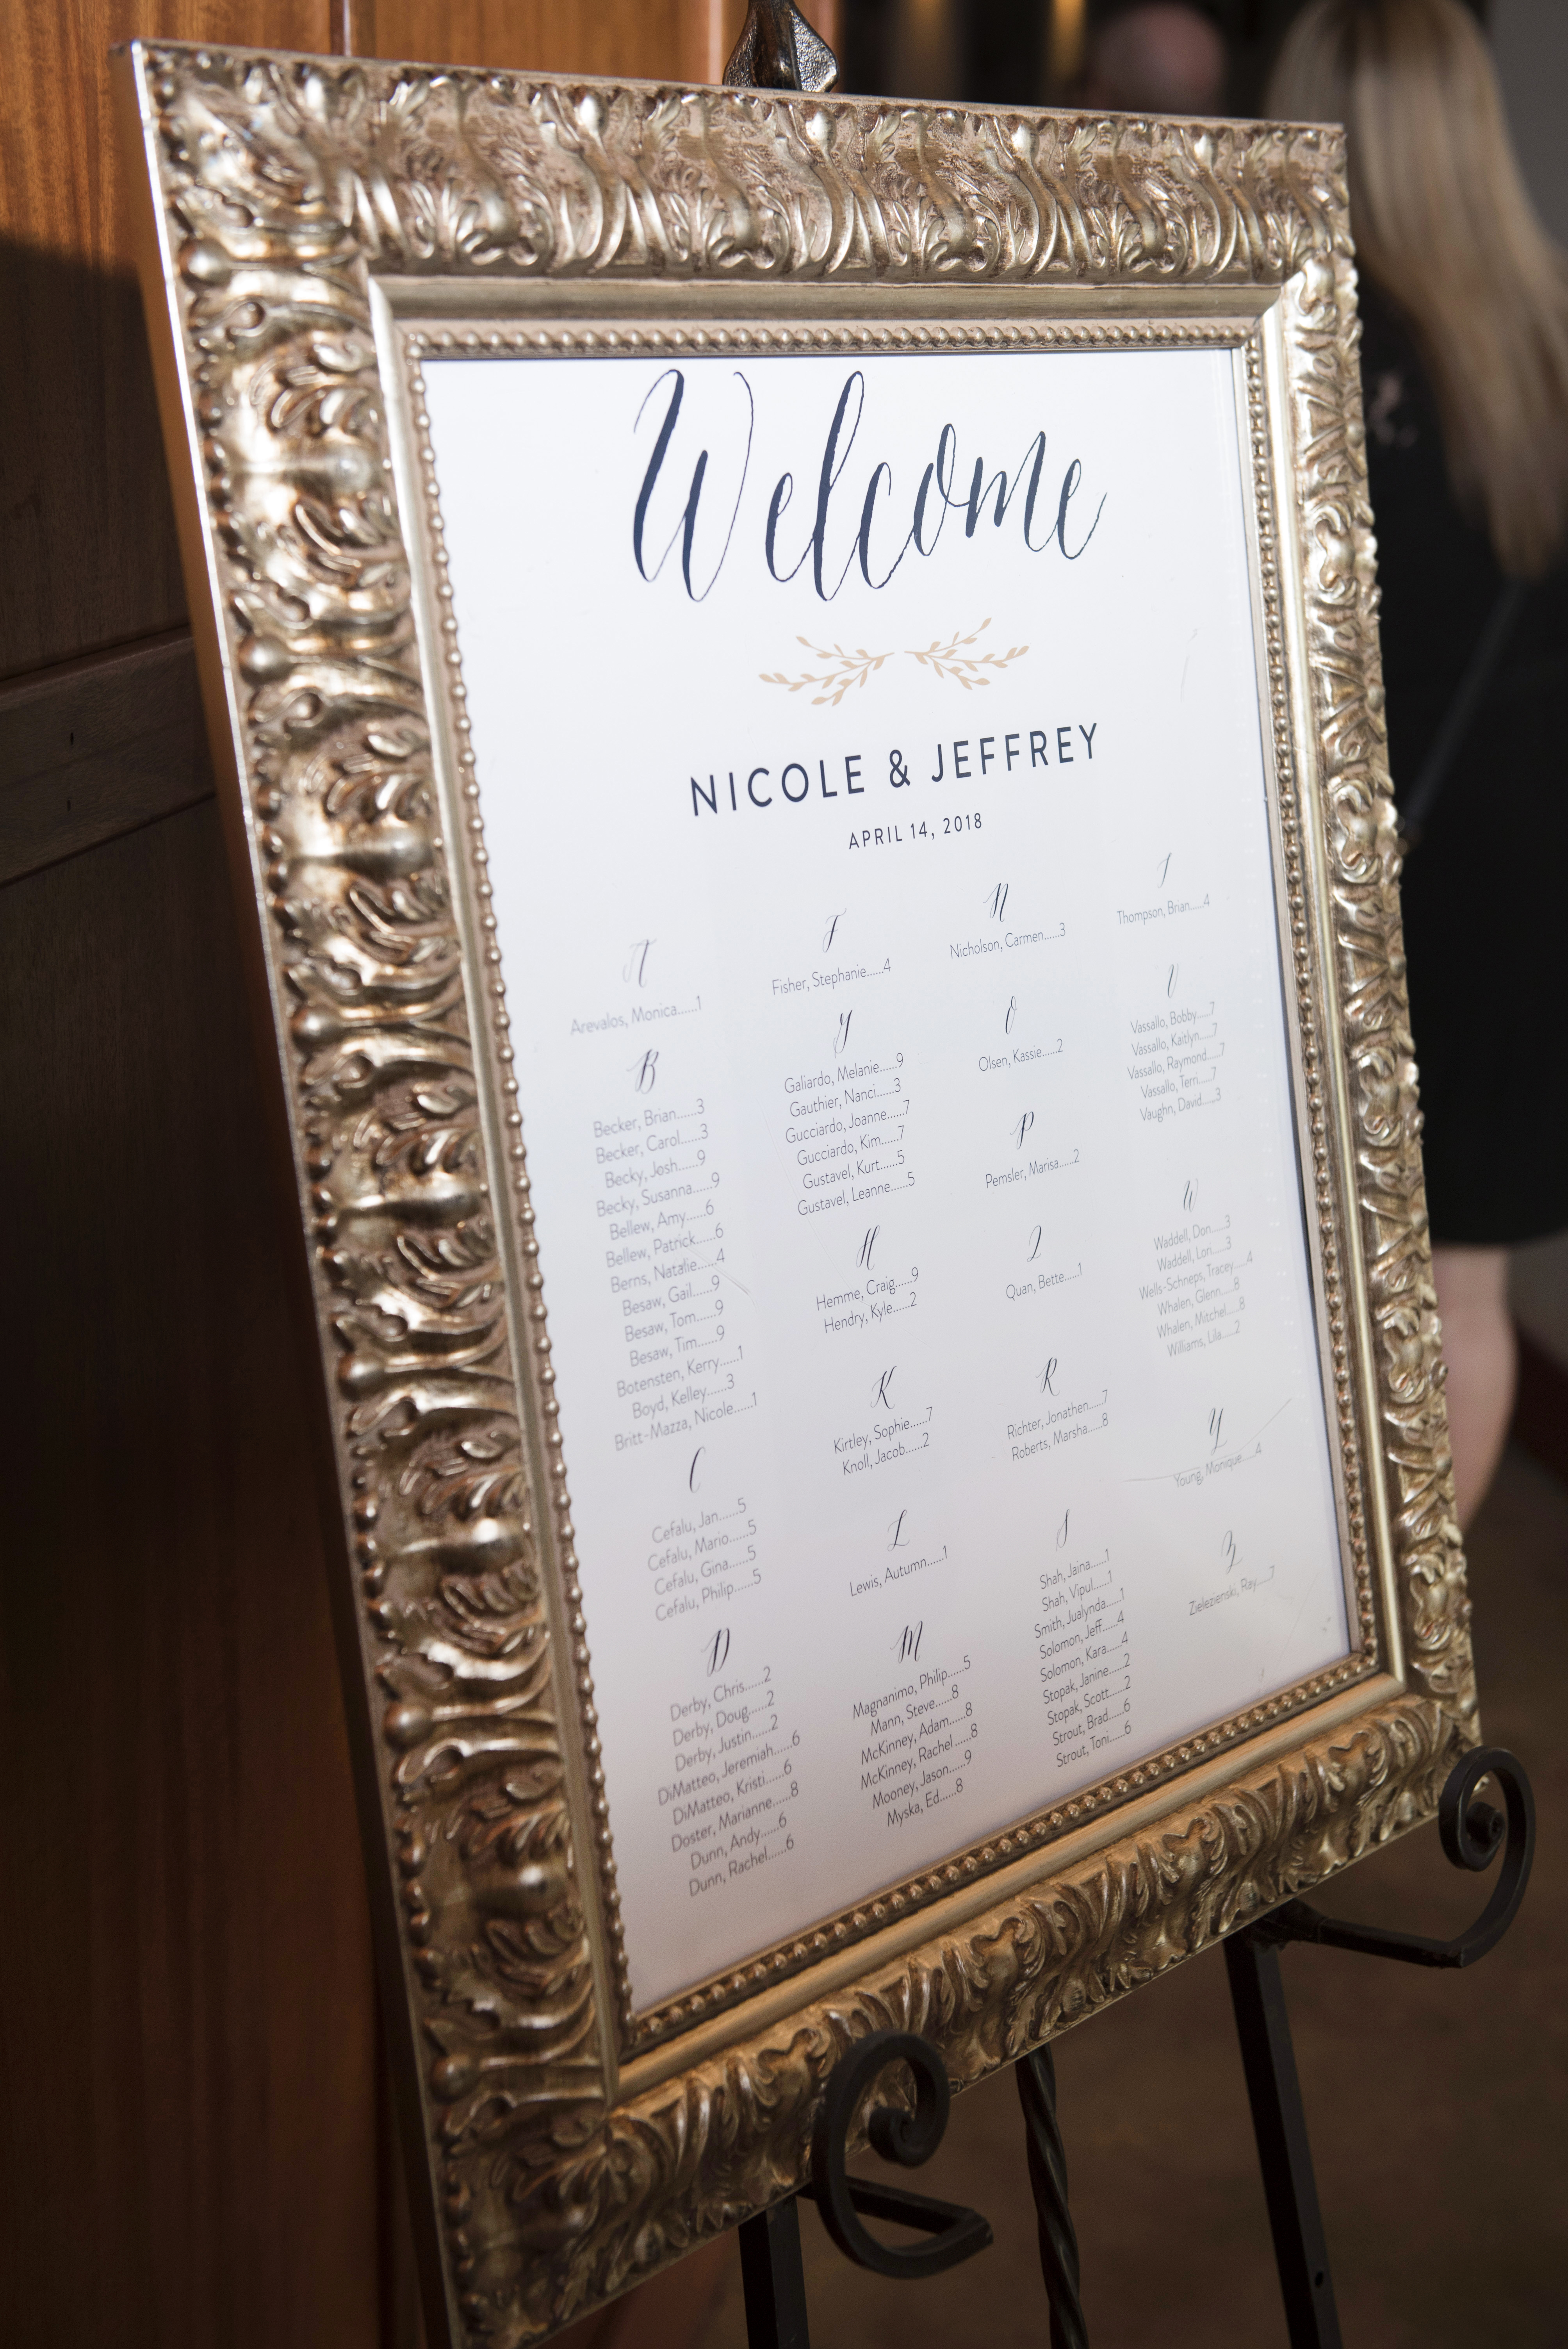 Welcome
NICOLE & JEFFREY
APRIL 14, 2018
A
Arevalos, Monica......1
B
Becker, Brian......3
Becker, Carol......3
Becky, Josh......9
Becky, Susanna......9
Bellew, Amy......6
Bellew, Patrick......6
Berns, Natalie......4
Besaw, Gail......9
Besaw, Tom......9
Besaw, Tim......9
Botensten, Kerry......1
Boyd, Kelley......3
Britt-Mazza, Nicole......1
C
Cefalu, Jan......5
Cefalu, Mario......5
Cefalu, Gina......5
Cefalu, Philip......5
D
Derby, Chris......2
Derby, Doug......2
Derby, Justin......2
DiMatteo, Jeremiah......6
DiMatteo, Kristi......6
Doster, Marianne......8
Dunn, Andy......6
Dunn, Rachel......6
F
Fisher, Stephanie......4
G
Galiardo, Melanie......9
Gauthier, Nanci......3
Gucciardo, Joanne......7
Gucciardo, Kim......7
Gustavel, Kurt......5
Gustavel, Leanne......5
H
Hemme, Craig......9
Hendry, Kyle......2
K
Kirtley, Sophie......7
Knoll, Jacob......2
L
Lewis, Autumn......1
M
Magnanimo, Philip......5
Mann, Steve......8
McKinney, Adam......8
McKinney, Rachel......8
Mooney, Jason......9
Myska, Ed......8
N
Nicholson, Carmen......3
O
Olsen, Kassie......2
P
Pemsler, Marisa......2
Q
Quan, Bette......1
R
Richter, Jonathen......7
Roberts, Marsha......8
S
Shah, Jaina......1
Shah, Vipul......1
Smith, Jualynda......1
Solomon, Jeff......4
Solomon, Kara......4
Stopak, Janine......2
Stopak, Scott......2
Strout, Brad......6
Strout, Toni......6
T
Thompson, Brian......4
V
Vassallo, Bobby......7
Vassallo, Kaitlyn......7
Vassallo, Raymond......7
Vassallo, Terri......7
Vaughn, David......3
W
Waddell, Don......3
Waddell, Lori......3
Wells-Schneps, Tracey......4
Whalen, Glenn......8
Whalen, Mitchel......8
Williams, Lila......2
Y
Young, Monique......4
Z
Zielezienski, Ray......7